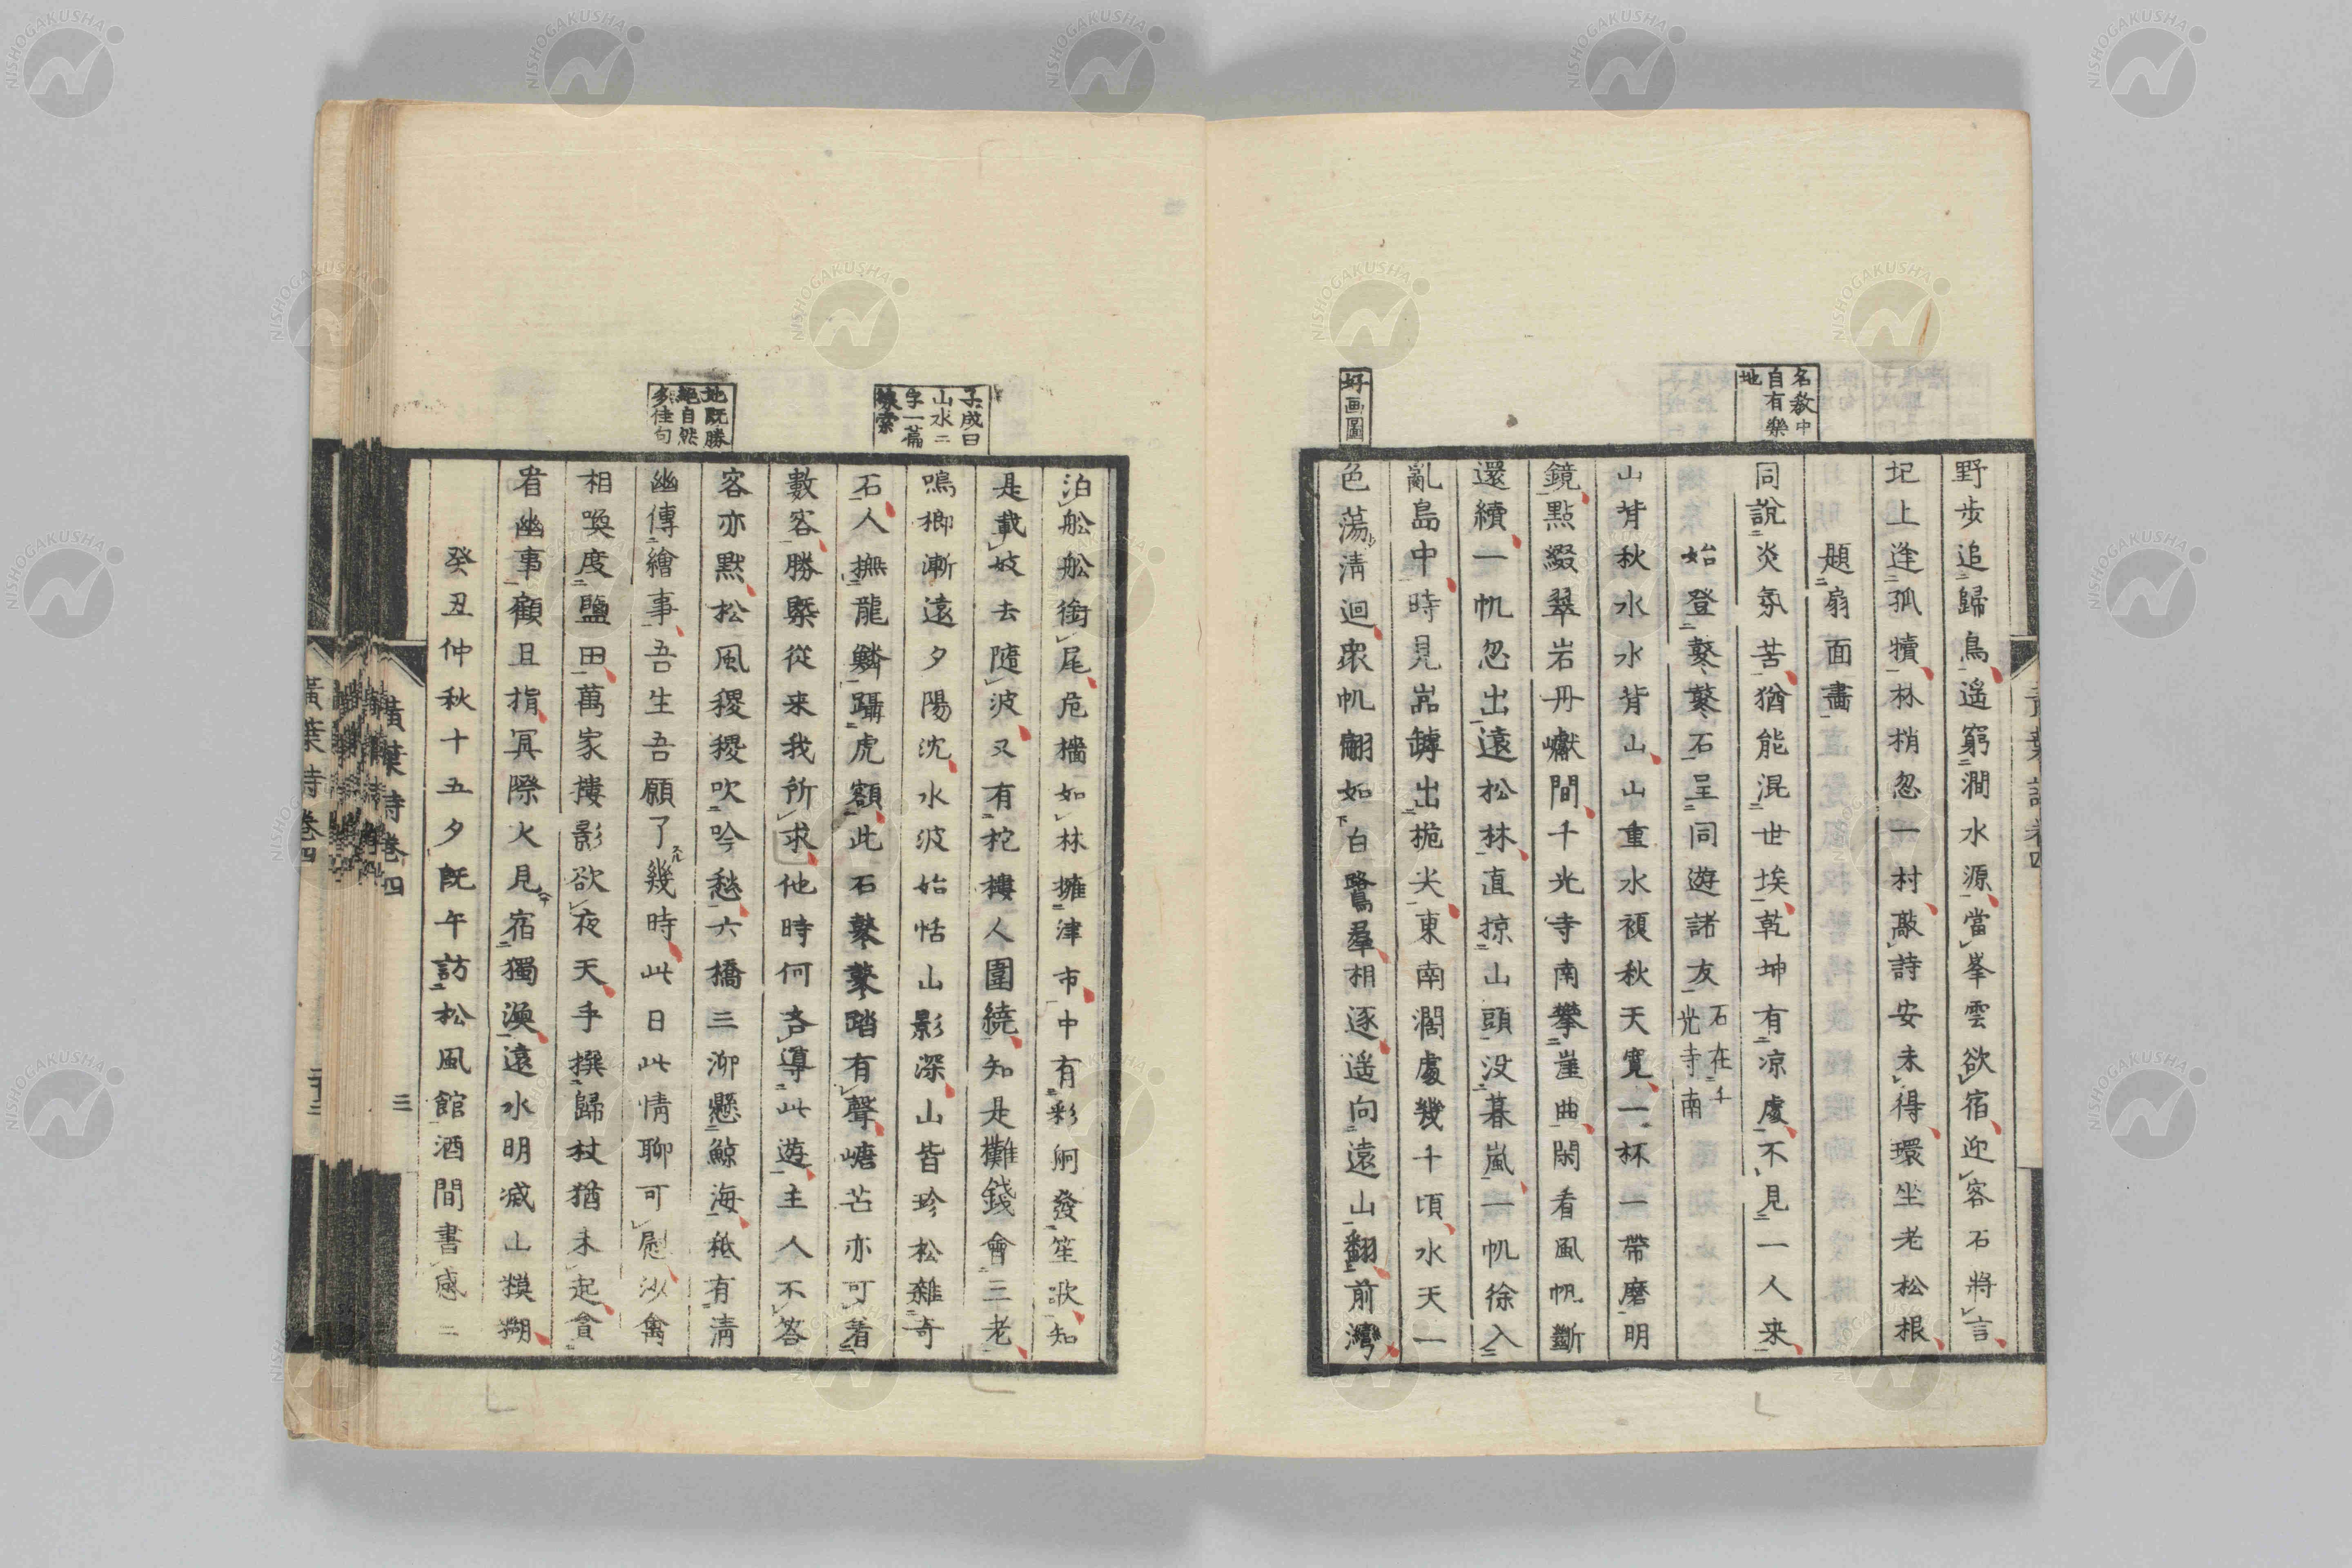 名教中
自有樂
地
好画圖
野步追歸鳥遙窮澗水源當峯雲欲宿迎客石將言
圯上逢孤犢林梢忽一村敲詩安未得環坐老松根
題扇面畵
同說炎氛苦猶能混世埃乾坤有凉處不見一人来
始登鼜鼜石呈同遊諸友石在千光寺南
山背秋水水背山山重水複秋天寬一杯一帶磨明
鏡點綴翠岩丹巘間千光寺南攀崖曲閑看風帆斷
還續一帆忽出遠松林直掠山頭没暮嵐一帆徐入
亂島中時見嵓罅出桅尖東南濶處幾千頃水天一
色蕩淸迴衆帆翩如白鷺羣相逐遥向遠山翻前灣
黃葉詩卷四
子成曰
山水二
字一篇
線索
地既勝
絕自然
多佳句
泊船船銜尾危檣如林擁津市中有彩舸發笙歌知
是載妓去隨波又有柁樓人圍繞知是攤錢會三老
鳴榔漸遠夕陽沈水波始恬山影深山皆珍松雜奇
石人撫龍鱗躡虎額此石鼜鼜踏有聲嵣芒亦可着
數客勝槩從来我所求他時何吝導此遊主人不答
客亦默松風稷稷吹吟愁六橋三泖懸鯨海秪有清
幽傳繪事吾生吾願了幾時此日此情聊可慰沙禽
相喚度鹽田萬家樓影欲夜天手撰歸杖猶未起貪
看幽事顧且指冥際火見宿獨漁遠水明滅山糢糊
癸丑仲秋十五夕既午訪松風館酒間書感二
黃葉詩卷四
三